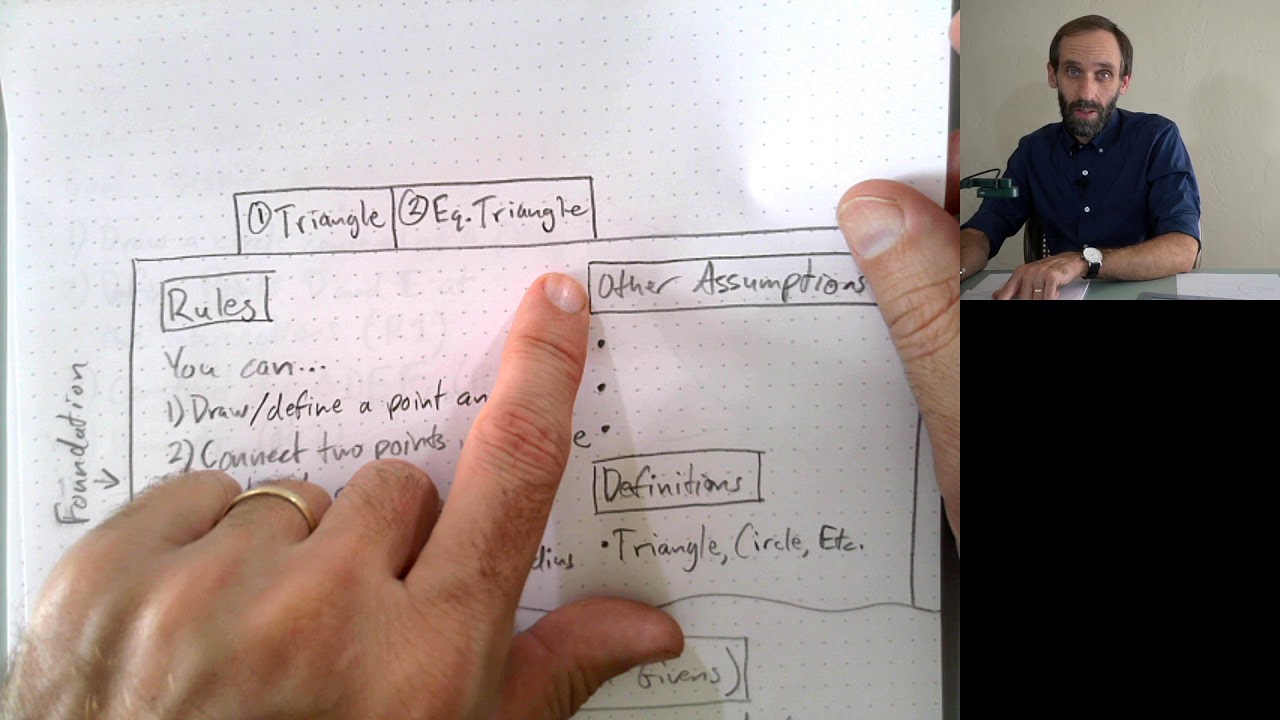 ① Triangle ② Eq. Triangle
Rules
You can...
1) Draw/define a point an
2) Connect two points
e
dius
Other Assumptions
Definitions
• Triangle, Circle, Etc.
Givens)
Foundation